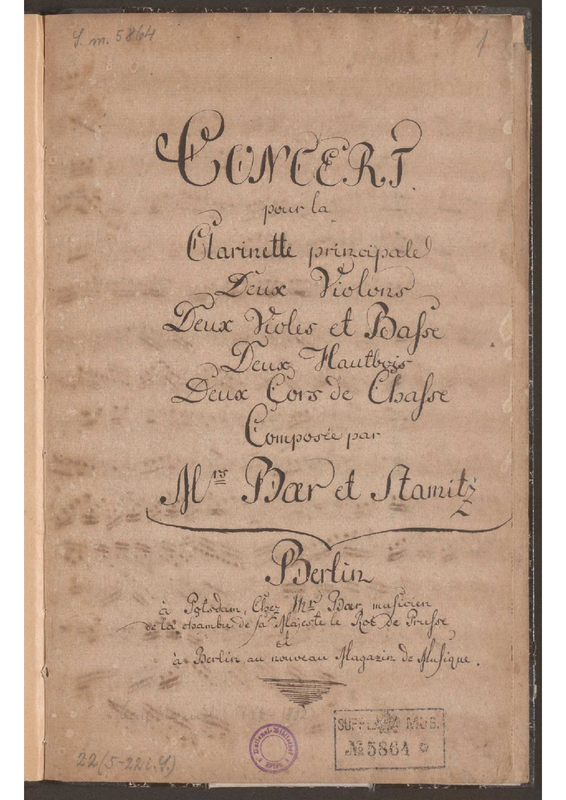 S. m. 5864
1
CONCERT.
pour la
Clarinette principale
Deux Violons
Deux Violes et Basse
Deux Hautbois
Deux Cors de Chasse
Composée par
Mrs Bær et Stamitz
Berlin
à Potsdam, Chez Mr Bær, musicien
de la chambre de sa Majeste le Roi de Prusse
et
à Berlin au nouveau Magazin de Musique.
SUPPL. MUS.
№ 5864
22 (5-22 i. Y.)